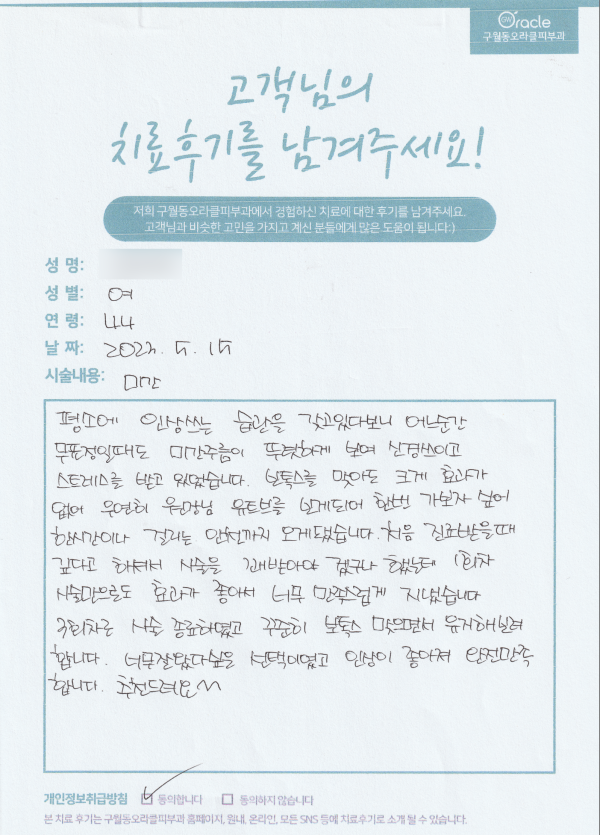 Oracle
구월동오라클피부과
고객님의
치료후기를 남겨주세요!
저희 구월동오라클피부과에서 경험하신 치료에 대한 후기를 남겨주세요.
고객님과 비슷한 고민을 가지고 계신 분들에게 많은 도움이 됩니다:)
성 명:
성 별: 여
연 령: 44
날 짜: 5. 15
시술내용: 미간
평소에 인상쓰는 습관을 갖고있다보니 어느순간
무표정일때도 미간주름이 뚜렷하게 보여 신경쓰이고
스트레스를 받고 있었습니다. 보톡스를 맞아도 크게 효과가
없어 우연히 원장님 유트브를 보게되어 한번 가보자 싶어
한시간이나 걸리는 인천까지 오게됐습니다. 처음 진료받을때
깊다고 하셔서 시술을 꽤받아야 겠구나 했는데 1회차
시술만으로도 효과가 좋아서 너무 만족스럽게 지냈습니다
회차로 시술 종료하였고 꾸준히 보톡스 맞으면서 유지해보려
합니다. 너무잘왔다싶은 선택이였고 인상이 좋아져 완전만족
합니다. 추천드려요~
개인정보취급방침 동의합니다 동의하지 않습니다
본 치료 후기는 구월동오라클피부과 홈페이지, 원내, 온라인, 모든 SNS 등에 치료후기로 소개 될 수 있습니다.